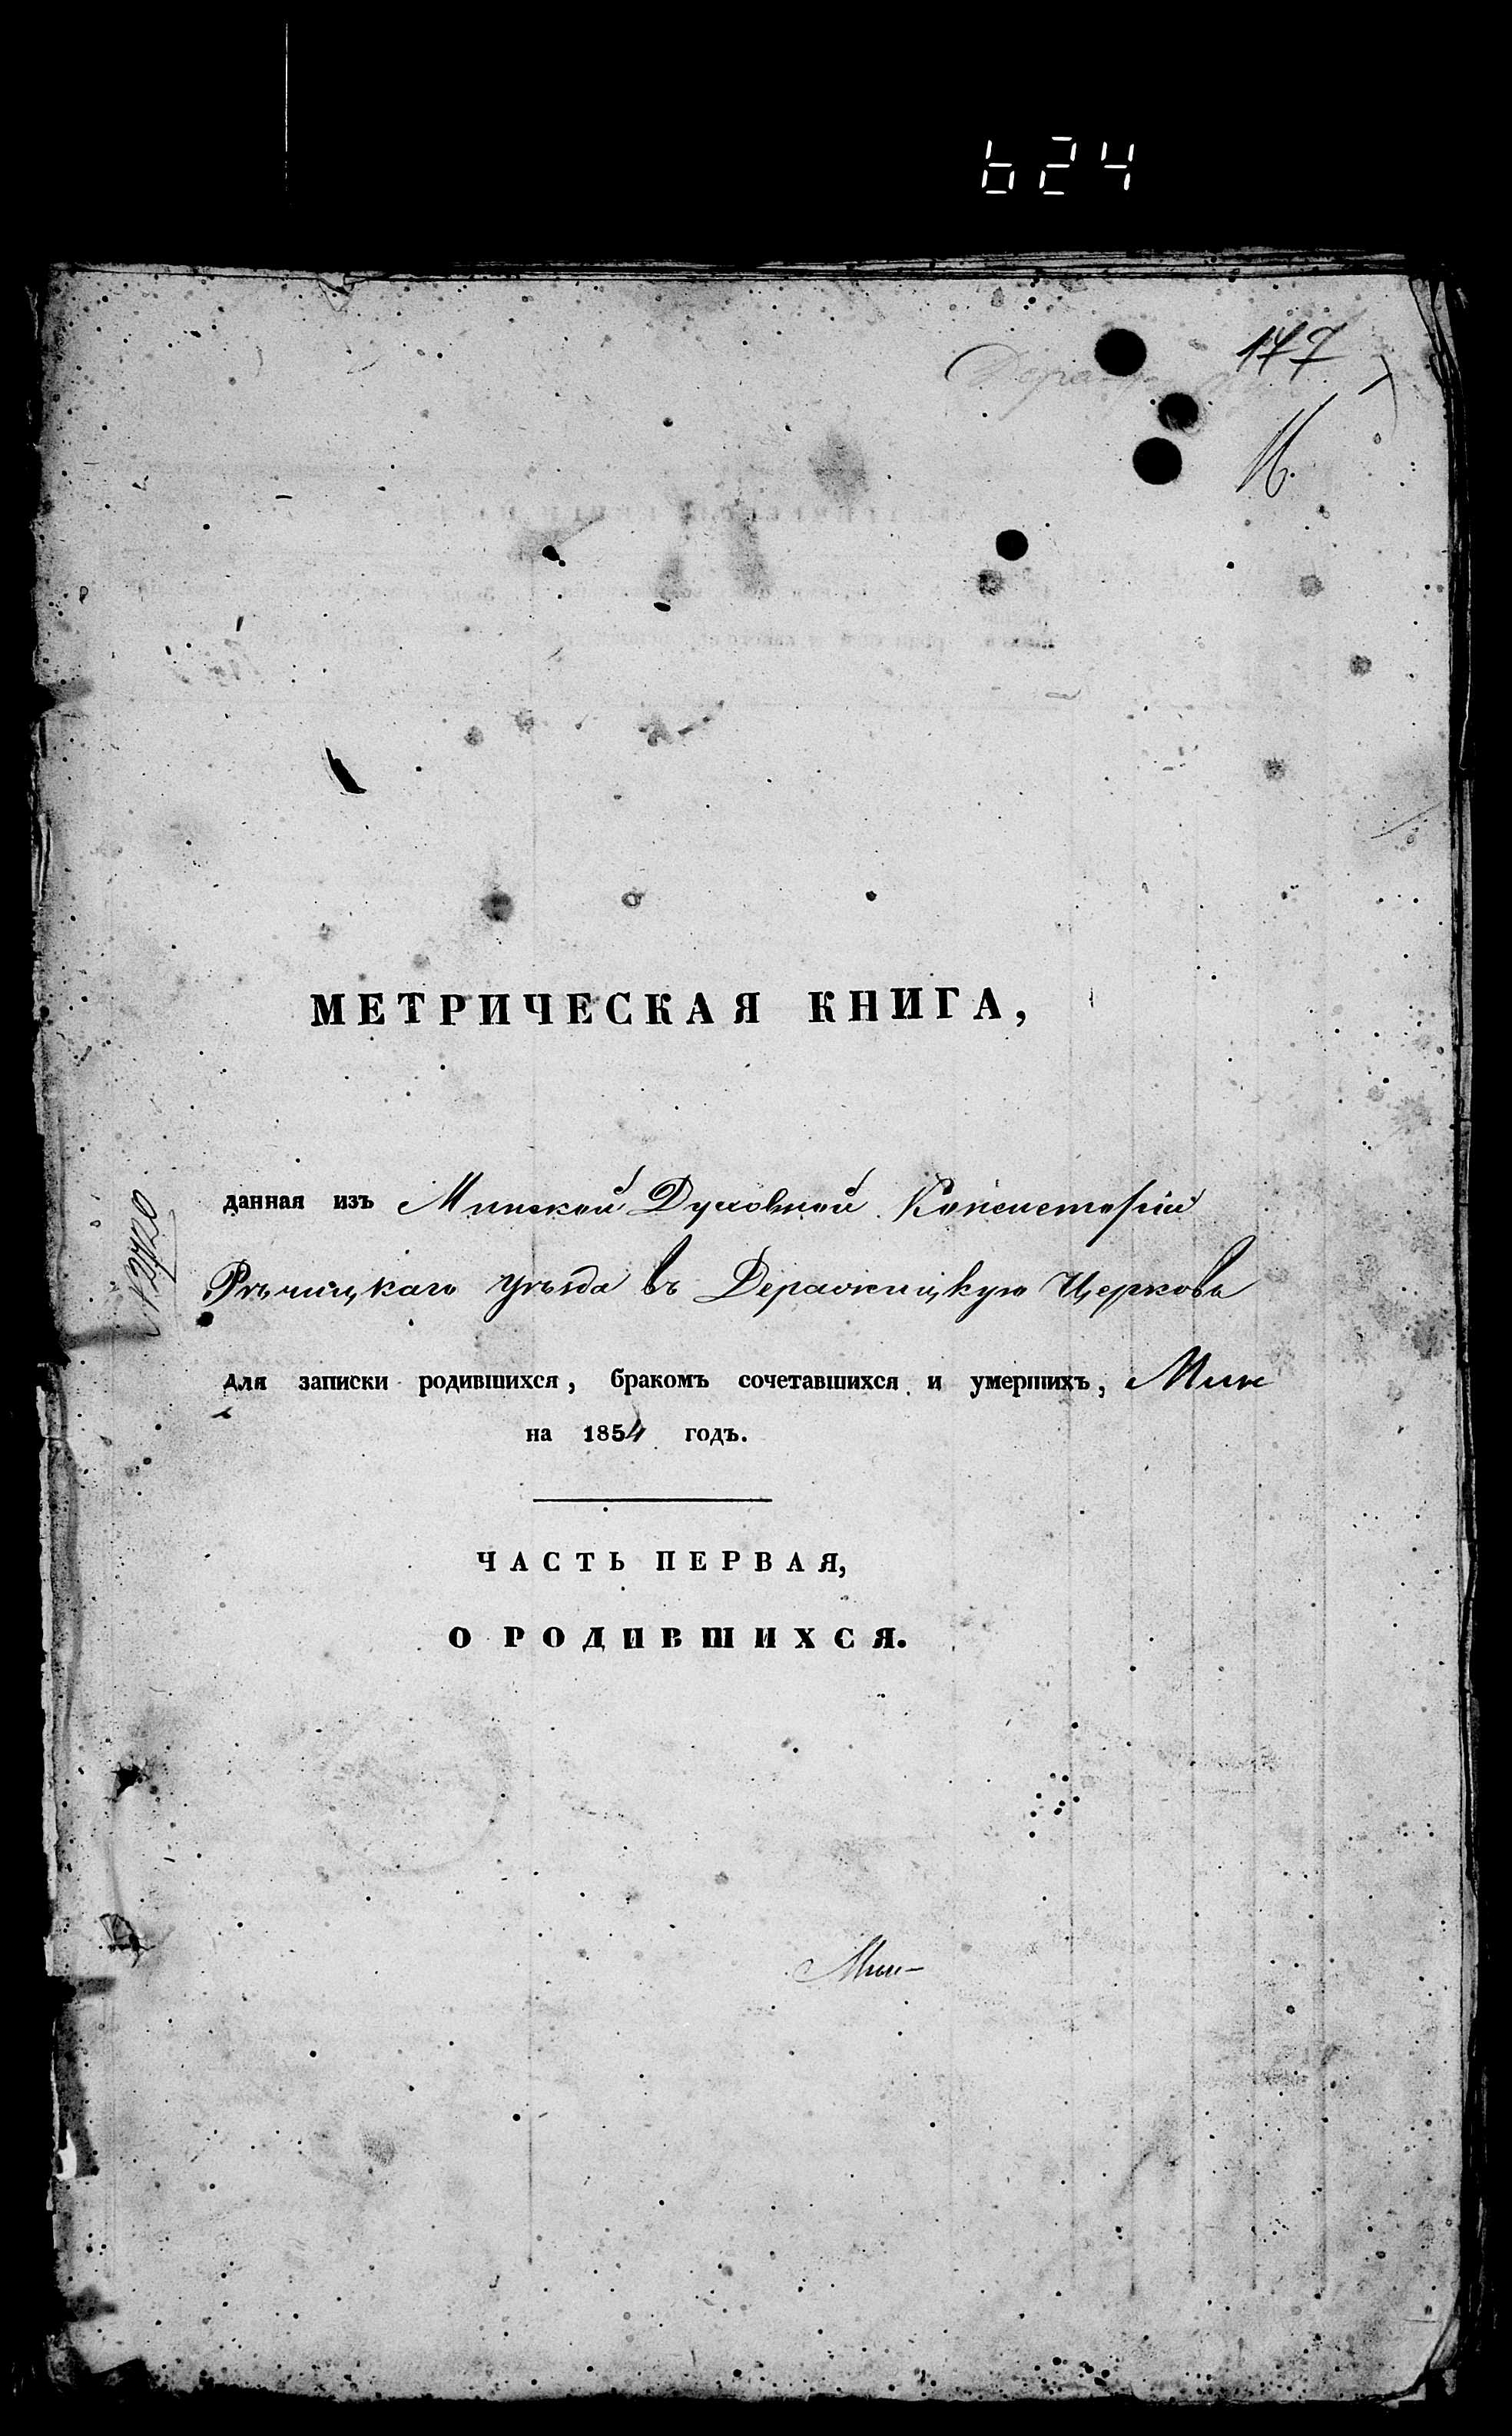 624
177
МЕТРИЧЕСКАЯ КНИГА,
данная изъ Минской Духовной Консисторіи
Рѣчицкаго уѣзда въ Деражицкую Церковь
для записки родившихся, бракомъ сочетавшихся и умершихъ,
на 1854 годъ.
ЧАСТЬ ПЕРВАЯ,
О РОДИВШИХСЯ.